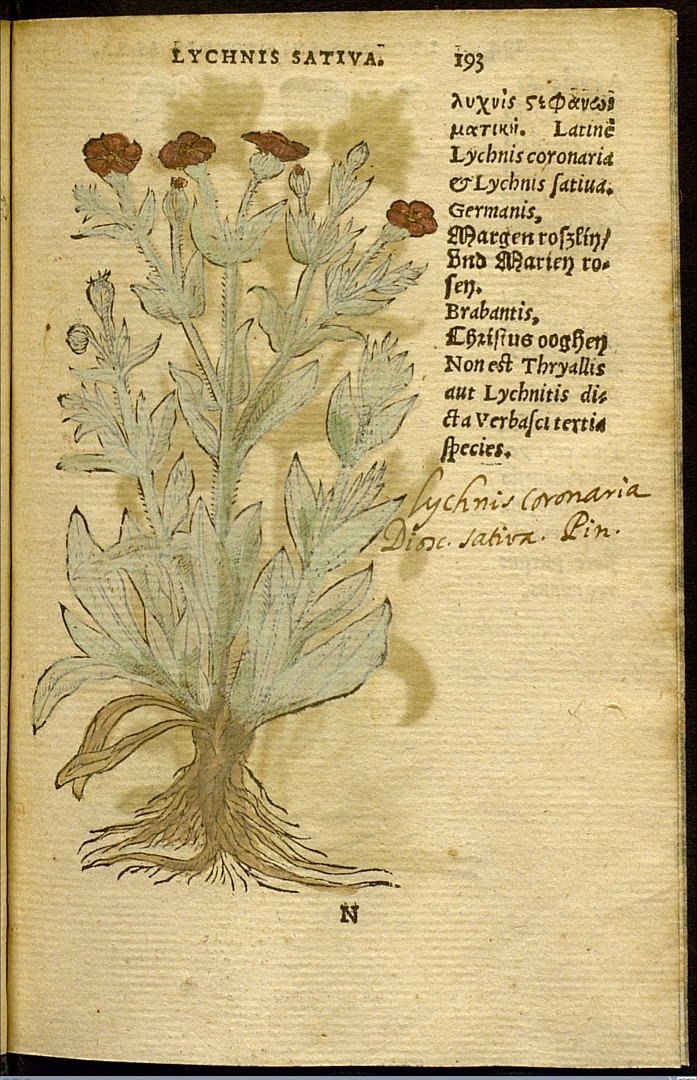 LYCHNIS SATIVA. 193
λυχνὶς ςεφανω⸗
ματική. Latinè
Lychnis coronaria
& Lychnis satiua.
Germanis,
Margen roſzlin/
Vnd Marien ro⸗
ſen.
Brabantis,
Chriſtus ooghen
Non eſt Thryallis
aut Lychnitis di⸗
cta Verbaſci tertia
ſpecies.
lychnis coronaria
Diosc. sativa. Pin.
N